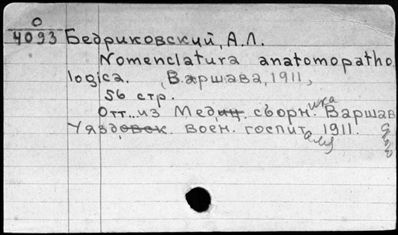 О
4093 Бедриковский, А.Л.
Nomenclatura anatomopatho
logica. Варшава, 1911,
56 стр.
Отт. из Медиц. сборника Варшав
Уяздовск. воен. госпиталя 1911.